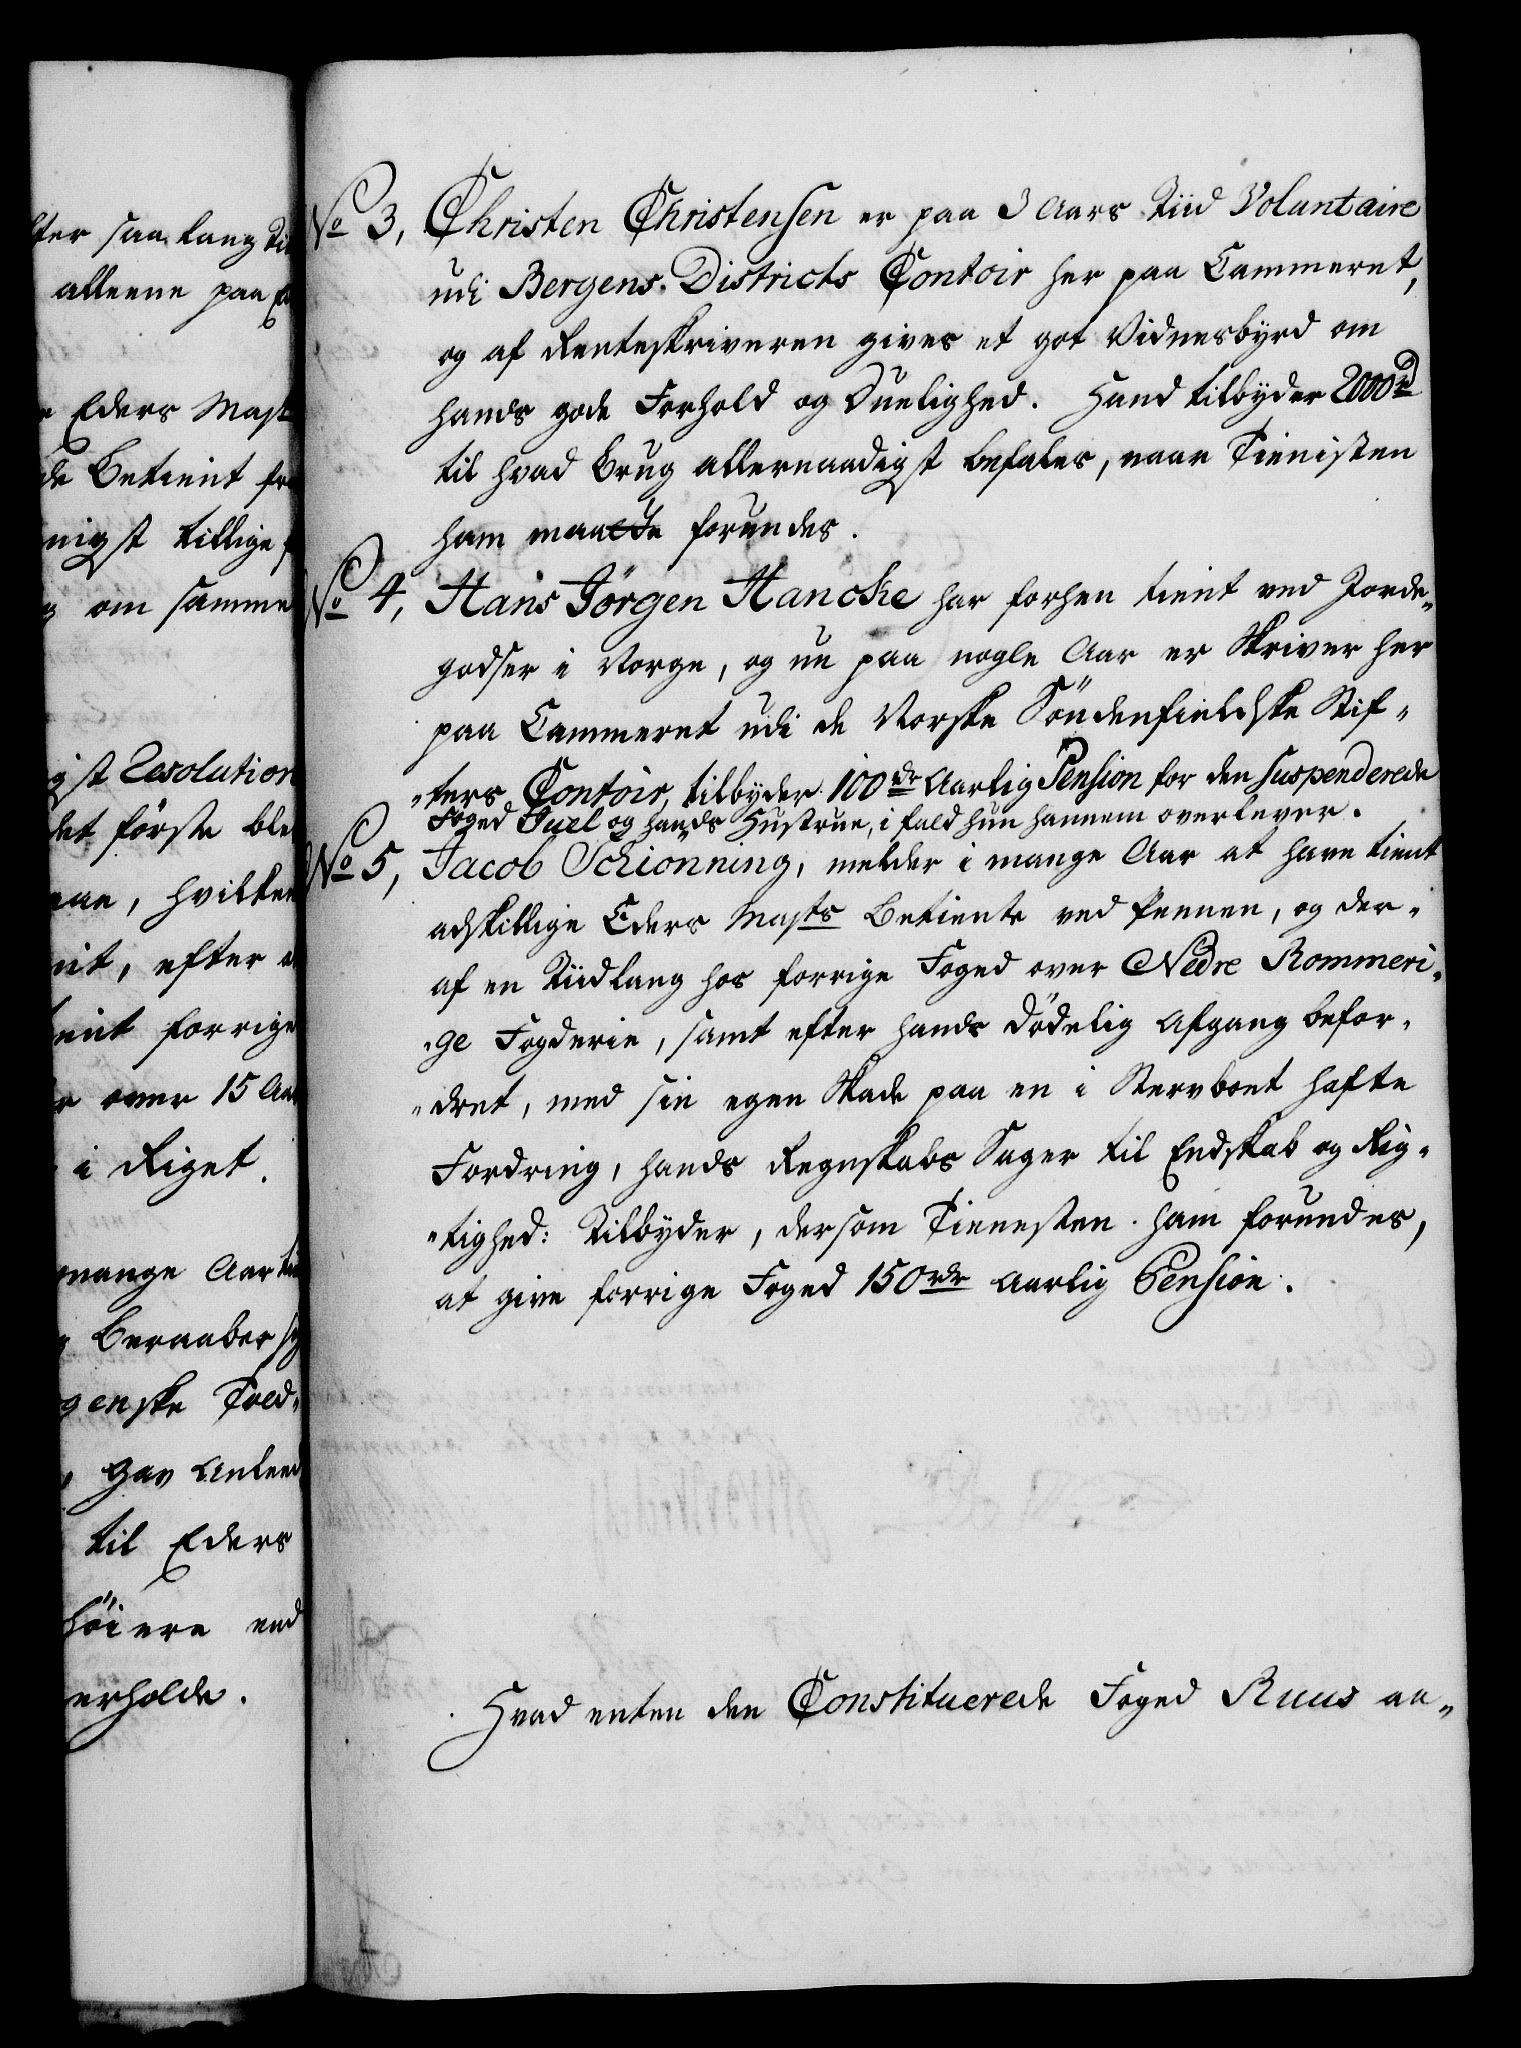 fter saa lang Ti
alleene paa
Eders Mayst
de Betient fr
nigst tillige f
om samme
gst Resolution
det første ble
aae, hvilken
nt, efter
ient forrige
over 15 Aar
i Riget.
mange Aar
Beraaber sig
genske Told-
gav Anleed
til Eders
høiere end
erholde.
No 3, Christen Christensen er paa 3 Aars Tiid Voluntaire
udi Bergens Districts Contoir her paa Cammeret,
og af Renteskriveren gives et got Vidnesbyrd om
hands gode Forhold og Duelighed. Hand tilbyder 2000 rd
til hvad Brug allernaadigst befales, naar Tienisten
ham maatte forundes.
No 4, Hans Jørgen Hancke har forhen tient ved Jorde-
godser i Norge, og nu paa nogle Aar er Skriver her
paa Cammeret udi de Norske Søndenfieldske Stif-
ters Contoir, tilbyder 100 rdr Aarlig Pension for den Suspenderede
Foged Juel og hands Hustrue, i fald hun hannem overlever.
No 5, Jacob Schiønning, melder i mange Aar at have tient
adskillige Eders Mayts Betiente ved Pennen, og der-
af en Tiidlang hos forrige Foged over Nedre Rommeri-
ge Fogderie, samt efter hands dødelig Afgang befor-
dret, med sin egen Skade paa en i Stervboet hafte
Fordring, hands Regnskabs Sager til Endskab og Rig-
tighed: Tilbyder, dersom Tienesten ham forundes,
at give forrige Foged 150 rdr Aarlig Pension.
Hvad enten den Constituerede Foged Ruus an-